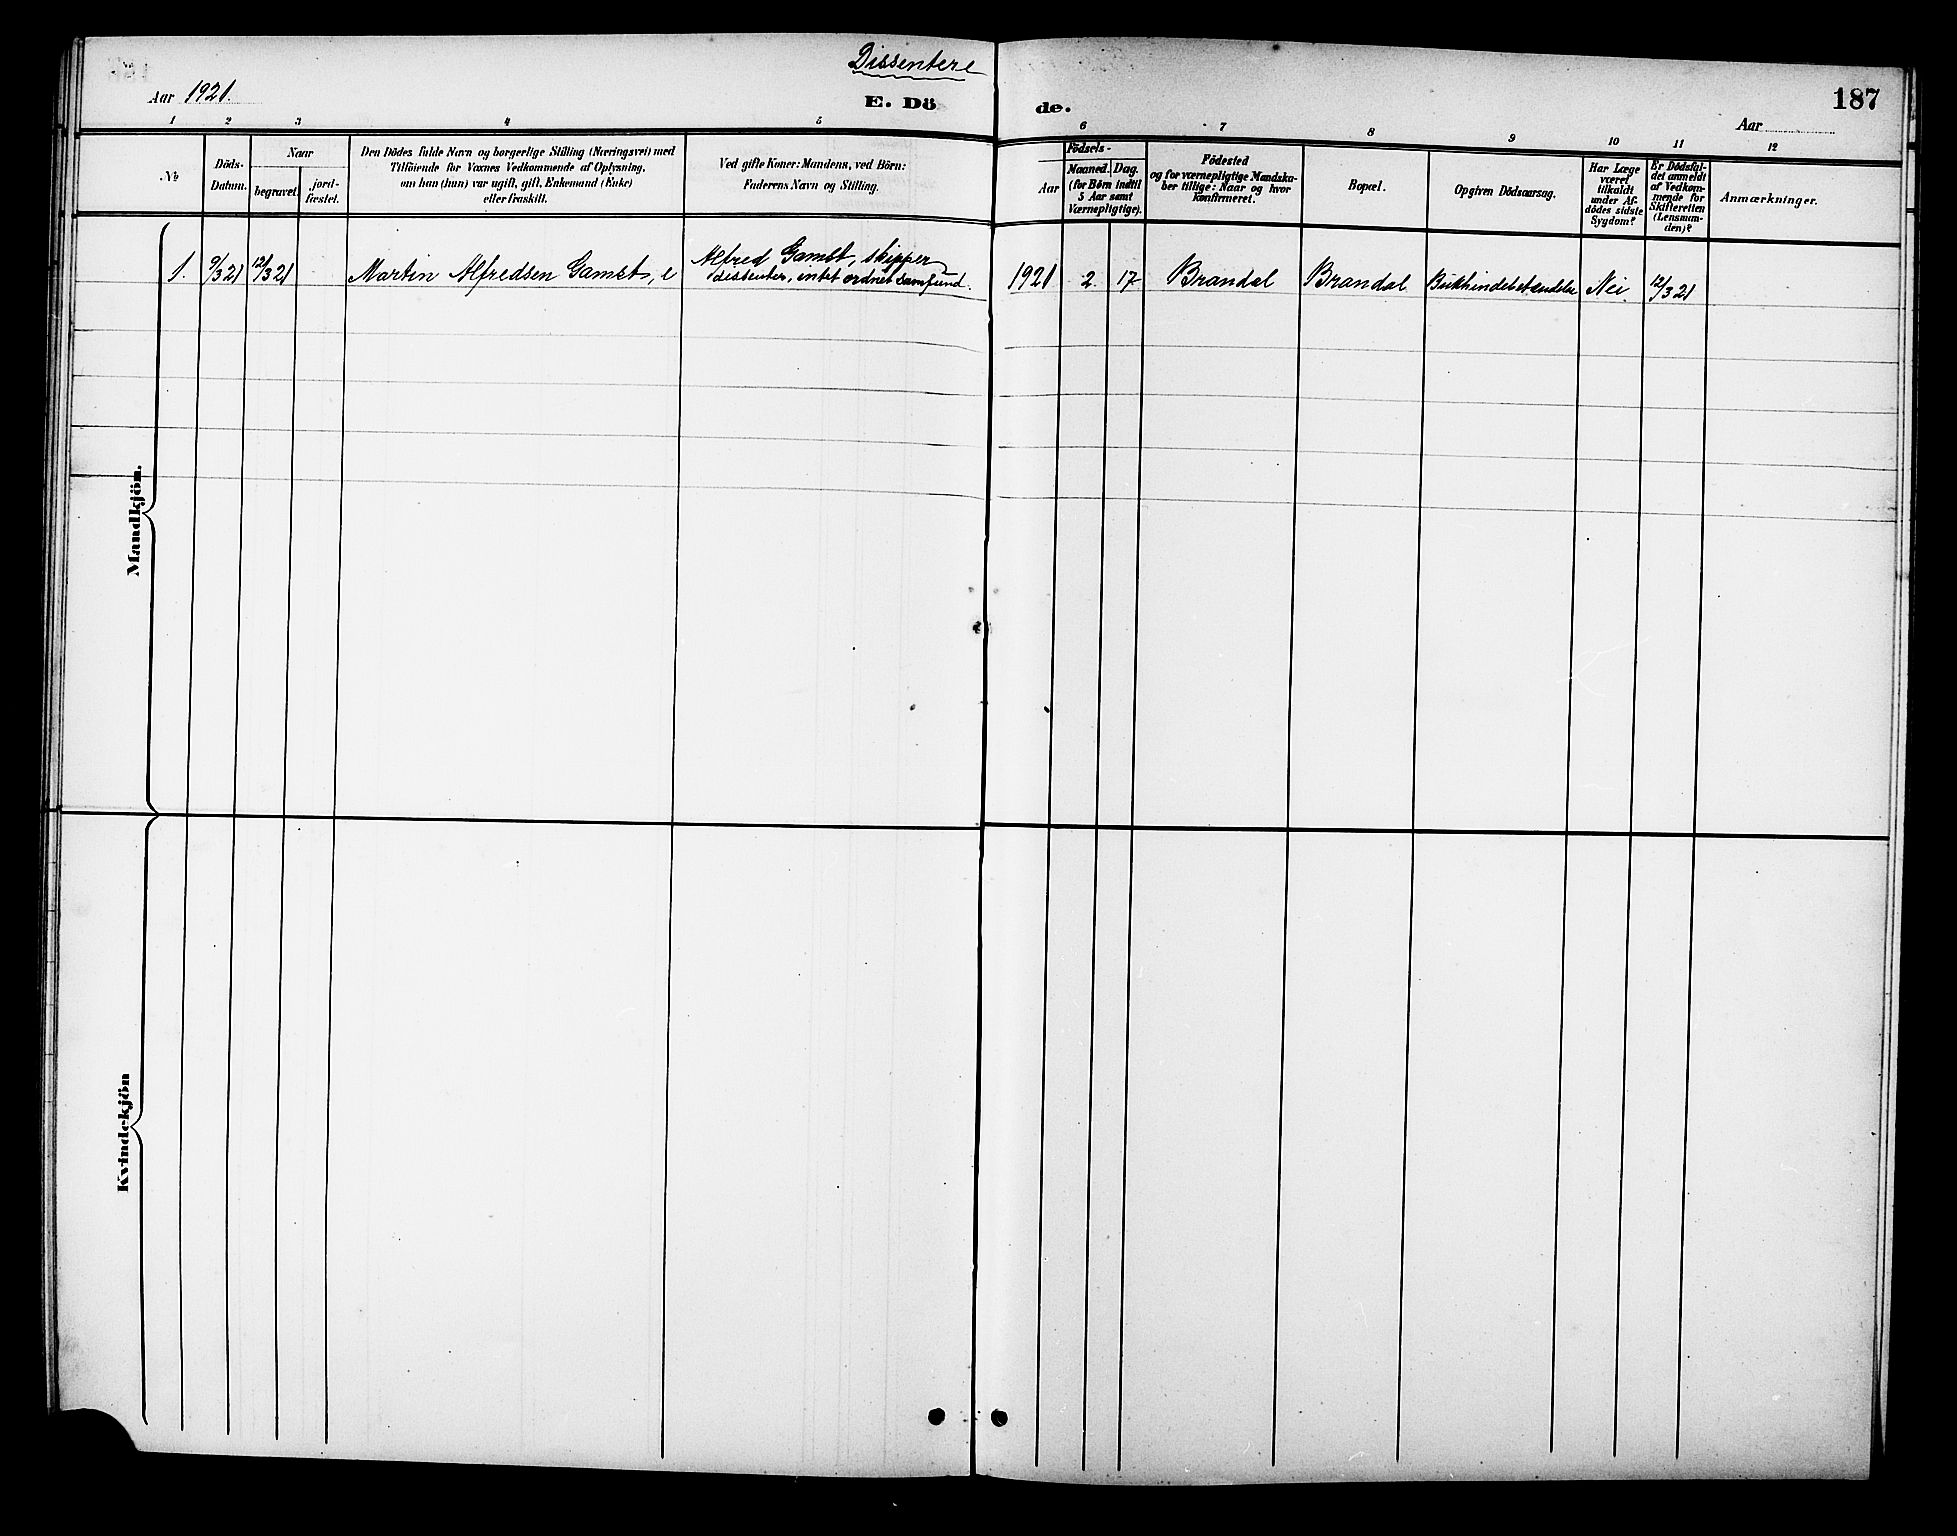 Dissentere
Aar 1921.
E. Dö de.
187
Aar
1 2 3 4 5 6 7 8 9 10 11 12
No
Döds-
Datum.
Naar
begravet.
jord-
fæstet.
Den Dödes fulde Navn og borgerlige Stilling (Næringsvei) med
Tilföiende for Voxnes Vedkommende af Oplysning,
om han (hun) var ugift, gift, Enkemand (Enke)
eller fraskilt.
Ved gifte Koner: Mandens, ved Börn:
Faderens Navn og Stilling.
Födsels-
Aar
Maaned.
Dag.
(for Börn indtil
5 Aar samt
Værnepligtige).
Födested
og for værnepligtige Mandska-
ber tillige: Naar og hvor
konfirmeret.
Bopæl.
Opgiven Dödsaarsag.
Har Læge
været
tilkaldt
under Af-
dödes sidste
Sygdom?
Er Dödsfal-
det anmeldt
af Vedkom-
mende for
Skifteretten
(Lensman-
den)?
Anmærkninger.
Mandkjön.
1. 9/3 21 12/3 21 Martin Alfredsen Gamst, e
Alfred Gamst, skipper
dissenter, intet ordnet samfund.
1921 2. 17 Brandal Brandal Bukhindebetændelse Nei 12/3 21
Kvindekjön